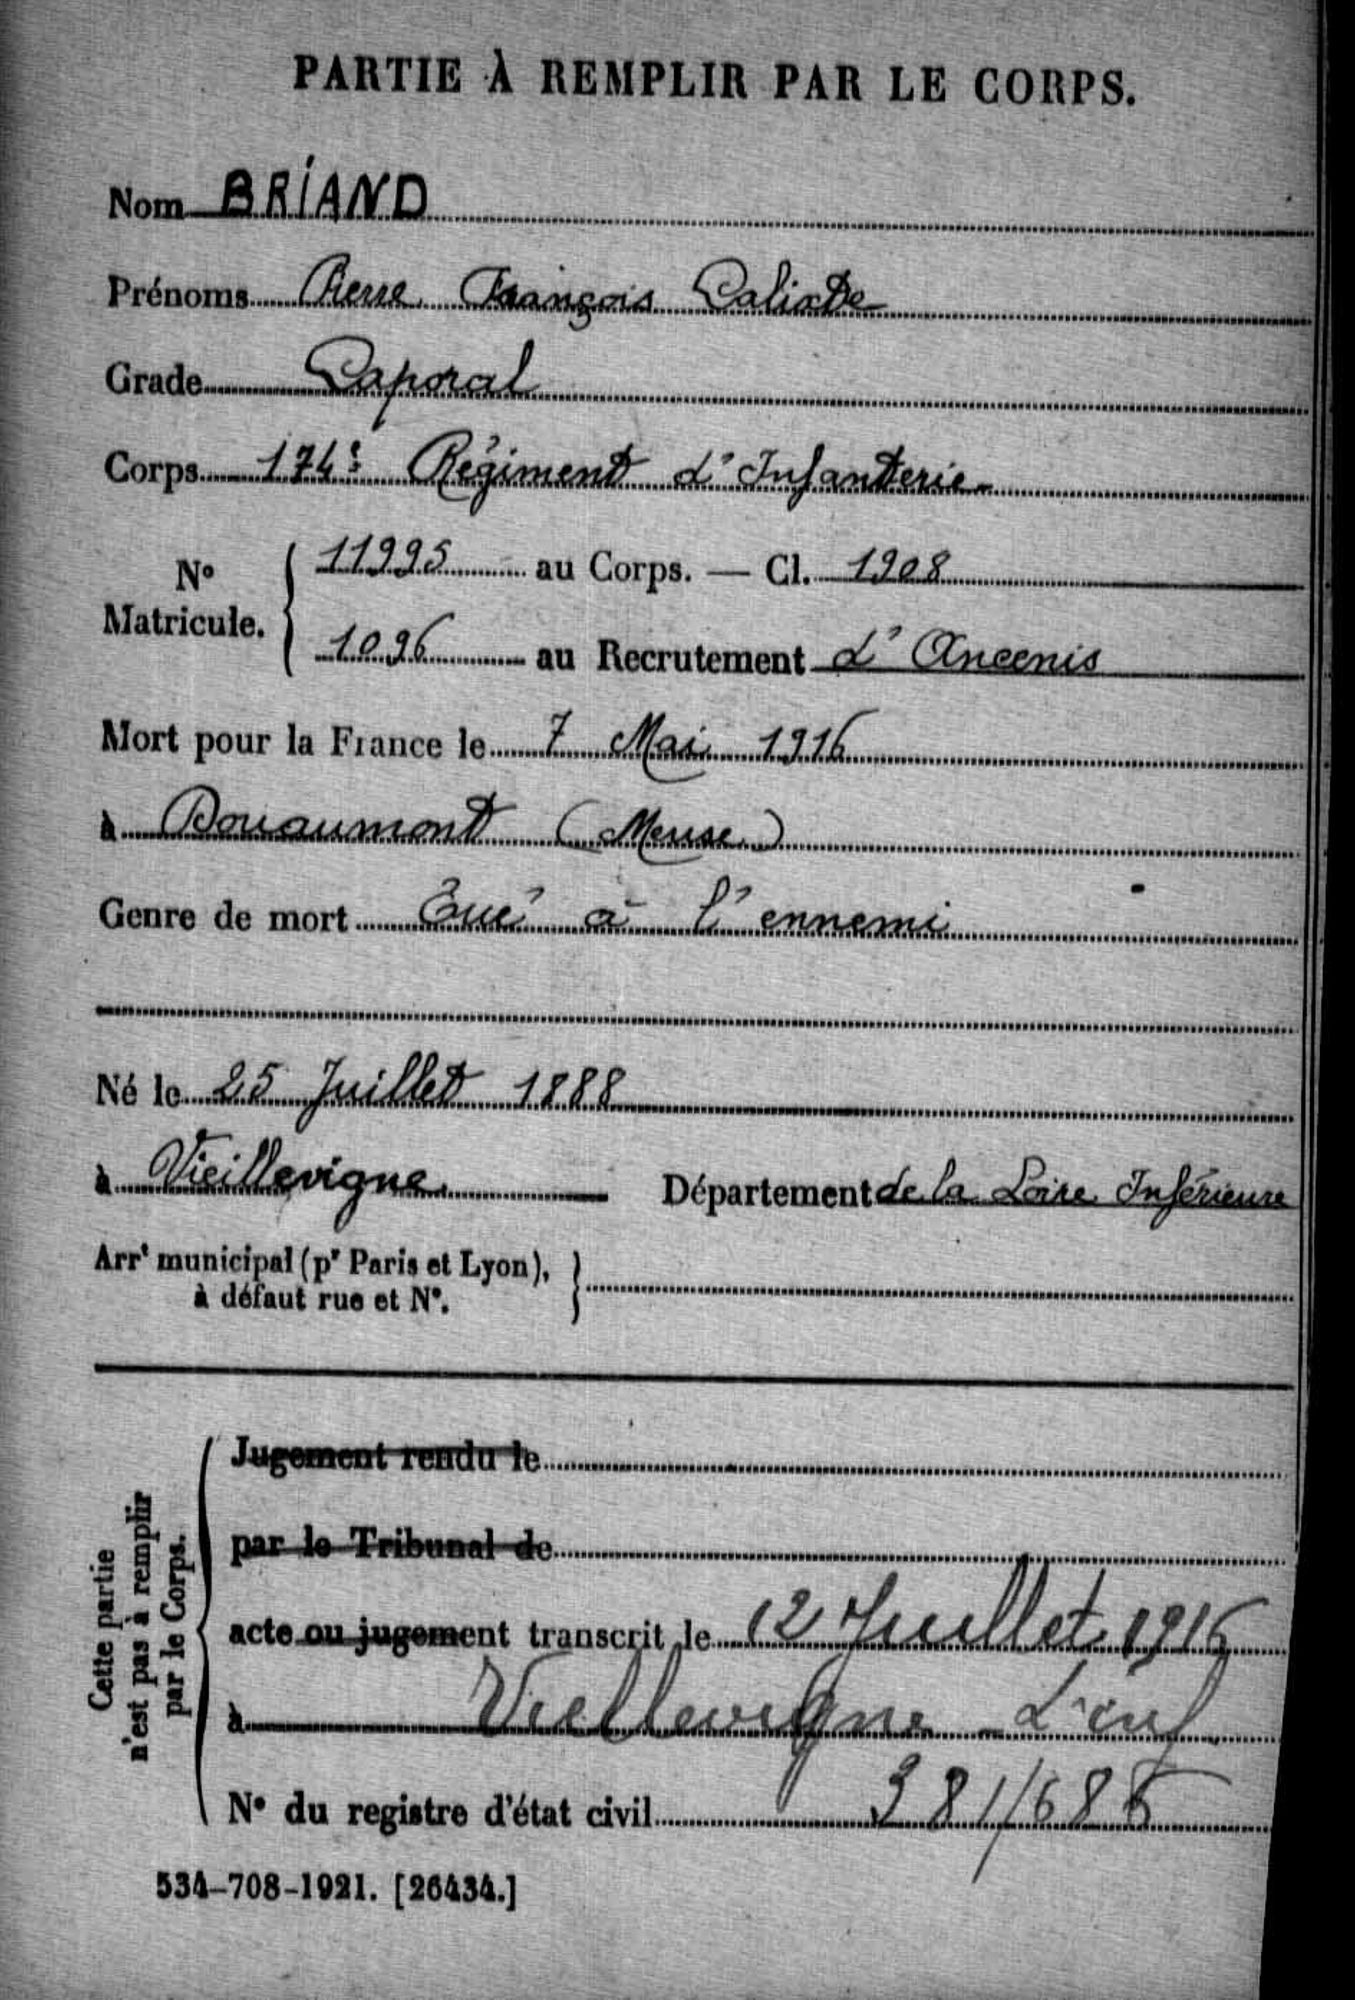 PARTIE À REMPLIR PAR LE CORPS.
Nom BRIAND
Prénoms Pierre François Calixte
Grade Caporal
Corps 174e Régiment d'Infanterie
N° Matricule. { 11995 au Corps. — Cl. 1908
1096 au Recrutement d'Ancenis
Mort pour la France le 7 Mai 1916
à Douaumont (Meuse)
Genre de mort Tué à l'ennemi
Né le 25 Juillet 1888
à Vieillevigne Département de la Loire Inférieure
Arrt municipal (pr Paris et Lyon),
à défaut rue et N°.
Cette partie
n'est pas à remplir
par le Corps.
Jugement rendu le
par le Tribunal de
acte ou jugement transcrit le 12 Juillet 1916
à Vieillevigne - L inf
N° du registre d'état civil 381/686
534-708-1921. [26434.]